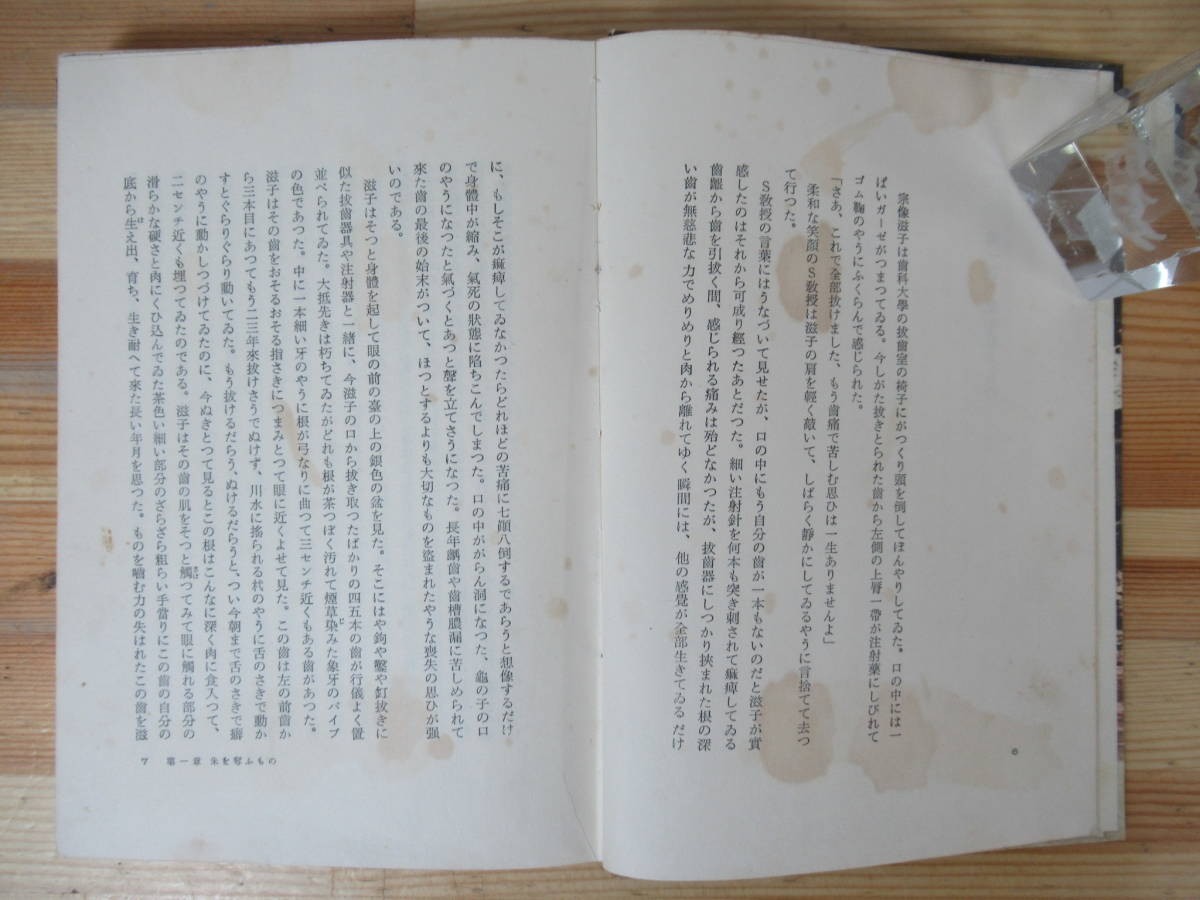 宗像滋子は齒科大學の拔齒室の椅子にがつくり頭を倒してぼんやりしてゐた。口の中には一
ぱいガーゼがつまつてゐる。今しがた拔きとられた齒から左側の上脣一帶が注射藥にしびれて
ゴム鞠のやうにふくらんで感じられた。
「さあ、これで全部拔けました、もう齒痛で苦しむ思ひは一生ありませんよ」
柔和な笑顏のＳ敎授は滋子の肩を輕く敲いて、しばらく靜かにしてゐるやうに言捨てて去つ
て行つた。
Ｓ敎授の言葉にはうなづいて見せたが、口の中にもう自分の齒が一本もないのだと滋子が實
感したのはそれから可成り經つたあとだつた。細い注射針を何本も突き刺されて痲痺してゐる
齒齦から齒を引拔く間、感じられる痛みは殆どなかつたが、拔齒器にしつかり挾まれた根の深
い齒が無慈悲な力でめりめりと肉から離れてゆく瞬間には、他の感覺が全部生きてゐるだけ
6
に、もしそこが痲痺してゐなかつたらどれほどの苦痛に七顚八倒するであらうと想像するだけ
で身體中が縮み、氣死の狀態に陷ちこんでしまつた。口の中ががらん洞になつた、龜の子の口
のやうになつたと氣づくとあつと聲を立てさうになつた。長年齲齒や齒槽膿漏に苦しめられて
來た齒の最後の始末がついて、ほつとするよりも大切なものを盜まれたやうな喪失の思ひが强
いのである。
滋子はそつと身體を起して眼の前の臺の上の銀色の盆を見た。そこにはや鉤や鑿や釘拔きに
似た拔齒器具や注射器と一緖に、今滋子の口から拔き取つたばかりの四五本の齒が行儀よく置
並べられてゐた。大抵先きは朽ちてゐたがどれも根が茶つぽく汚れて煙草染みた象牙のパイプ
の色であつた。中に一本細い牙のやうに根が弓なりに曲つて三センチ近くもある齒があつた。
滋子はその齒をおそるおそる指さきにつまみとつて眼に近くよせて見た。この齒は左の前齒か
ら三本目にあつてもう二三年來拔けさうでぬけず、川水に搖られる杙のやうに舌のさきで動か
すとぐらりぐらり動いてゐた。もう拔けるだらう、ぬけるだらうと、つい今朝まで舌のさきで癖
のやうに動かしつづけてゐたのに、今ぬきとつて見るとこの根はこんなに深く肉に食入つて、
二センチ近くも埋つてゐたのである。滋子はその齒の肌をそつと觸つてみて眼に觸れる部分の
滑らかな硬さと肉にくひ込んでゐた茶色い細い部分のざらざら粗らい手當りにこの齒の自分の
底から生え出、育ち、生き耐へて來た長い年月を思つた。ものを嚙む力の失はれたこの齒を滋
7 第一章 朱を奪ふもの